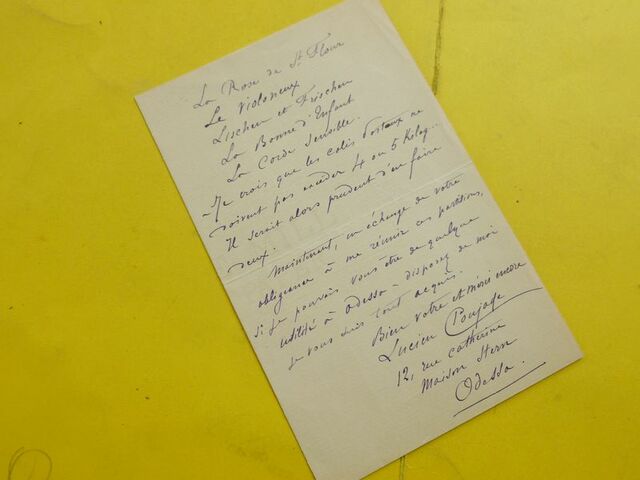 La Rose de St Flour
Le Violoneux
Lischen et Frischen
La Bonne d'Enfant
La Corde sensible.
- Je crois que les colis Postaux ne
doivent pas excéder 4 ou 5 Kilog..
Il serait alors prudent d'en faire
deux.
Maintenant, en échange de votre
obligeance à me réunir ces partitions,
si je pouvais vous être de quelque
utilité à Odessa - disposez de moi
je vous suis tout acquis.
Bien votre et merci encore
Lucien Poujade
12, rue Catherine
Maison Stern
Odessa.